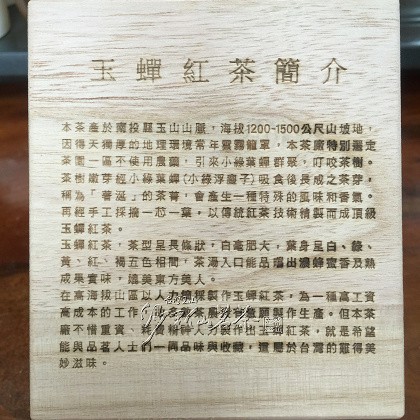 玉蟬紅茶簡介
本茶產於南投縣玉山山脈，海拔1200-1500公尺山坡地，
因得天獨厚的地理環境常年雲霧籠罩，本茶廠特別選定
茶園一區不使用農藥，引來小綠葉蟬群聚，叮咬茶樹。
茶樹嫩芽經小綠葉蟬(小綠浮塵子)吸食後長成之茶芽，
稱為「著涎」的茶菁，會產生一種特殊的風味和香氣。
再經手工採摘一芯一葉，以傳統紅茶技術精製而成頂級
玉蟬紅茶。
玉蟬紅茶，茶型呈長條狀，白毫肥大，葉身呈白、綠、
黃、紅、褐五色相間，茶湯入口能品嚐出濃蜂蜜香及熟
成果實味，媲美東方美人。
在高海拔山區以人力製作玉蟬紅茶，為一種高工資
高成本的工作，故
廠不惜重資、耗費人力製作出玉蟬紅茶，就是希望
能與品茗人士們一同品味與收藏，這屬於台灣的難得美
妙滋味。